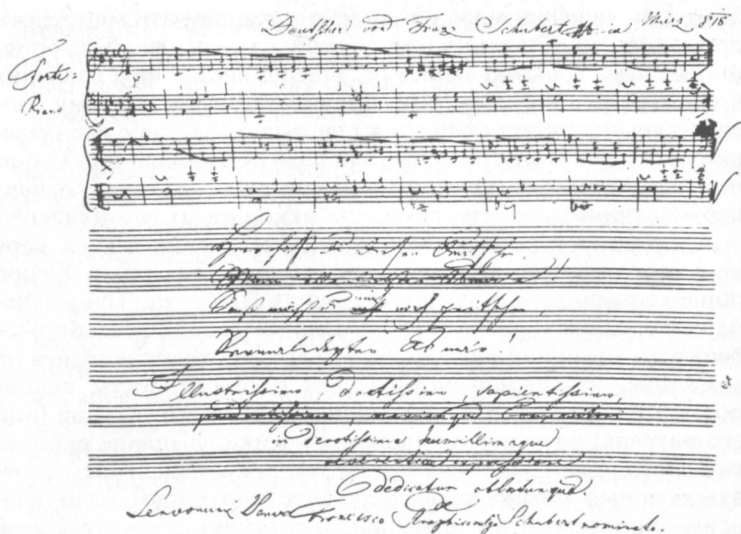 Deutscher von Franz Schubert März 818
Forte-
Piano
Hier hast du diesen Deutschen,
Mein allerliebster
Sonst möchst du mich noch peitschen,
Vermaledeyter
Illustrissimo, doctissimo, sapientissimo,
prudentissimo, maximoque Compositori
in devotissima humillimaque

Dedicatum oblatumque
de
Servorum Servo Francisco Schubert nominato.